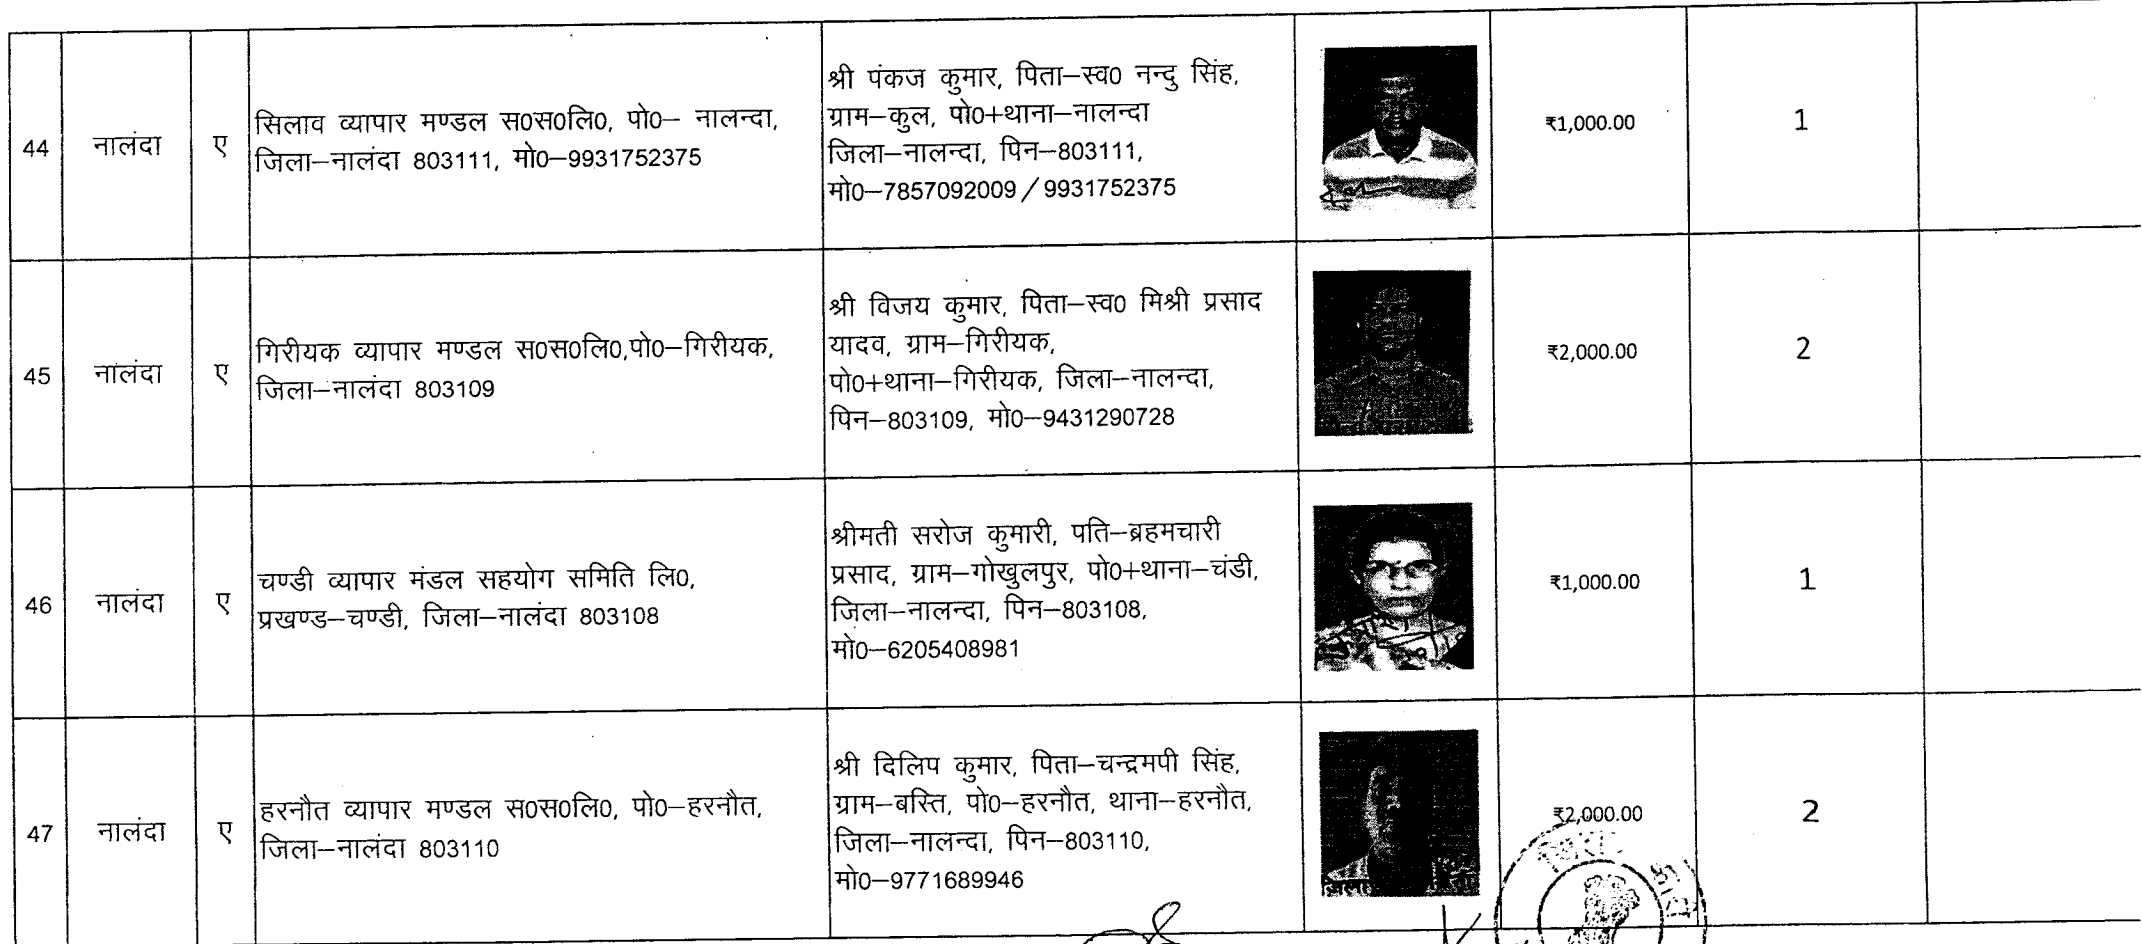 44
नालंदा
ए
सिलाव व्यापार मण्डल स0स0लि0, पो0– नालन्दा,
जिला–नालंदा 803111, मो0–9931752375
श्री पंकज कुमार, पिता–स्व0 नन्दु सिंह,
ग्राम–कुल, पो0+थाना–नालन्दा
जिला–नालन्दा, पिन–803111,
मो0–7857092009/9931752375
₹1,000.00
1
45
नालंदा
ए
गिरीयक व्यापार मण्डल स0स0लि0,पो0–गिरीयक,
जिला–नालंदा 803109
श्री विजय कुमार, पिता–स्व0 मिश्री प्रसाद
यादव, ग्राम–गिरीयक,
पो0+थाना–गिरीयक, जिला–नालन्दा,
पिन–803109, मो0–9431290728
₹2,000.00
2
46
नालंदा
ए
चण्डी व्यापार मंडल सहयोग समिति लि0,
प्रखण्ड–चण्डी, जिला–नालंदा 803108
श्रीमती सरोज कुमारी, पति–ब्रहमचारी
प्रसाद, ग्राम–गोखुलपुर, पो0+थाना–चंडी,
जिला–नालन्दा, पिन–803108,
मो0–6205408981
₹1,000.00
1
47
नालंदा
ए
हरनौत व्यापार मण्डल स0स0लि0, पो0–हरनौत,
जिला–नालंदा 803110
श्री दिलिप कुमार, पिता–चन्द्रमपी सिंह,
ग्राम–बस्ति, पो0–हरनौत, थाना–हरनौत,
जिला–नालन्दा, पिन–803110,
मो0–9771689946
जिला
₹2,000.00
2